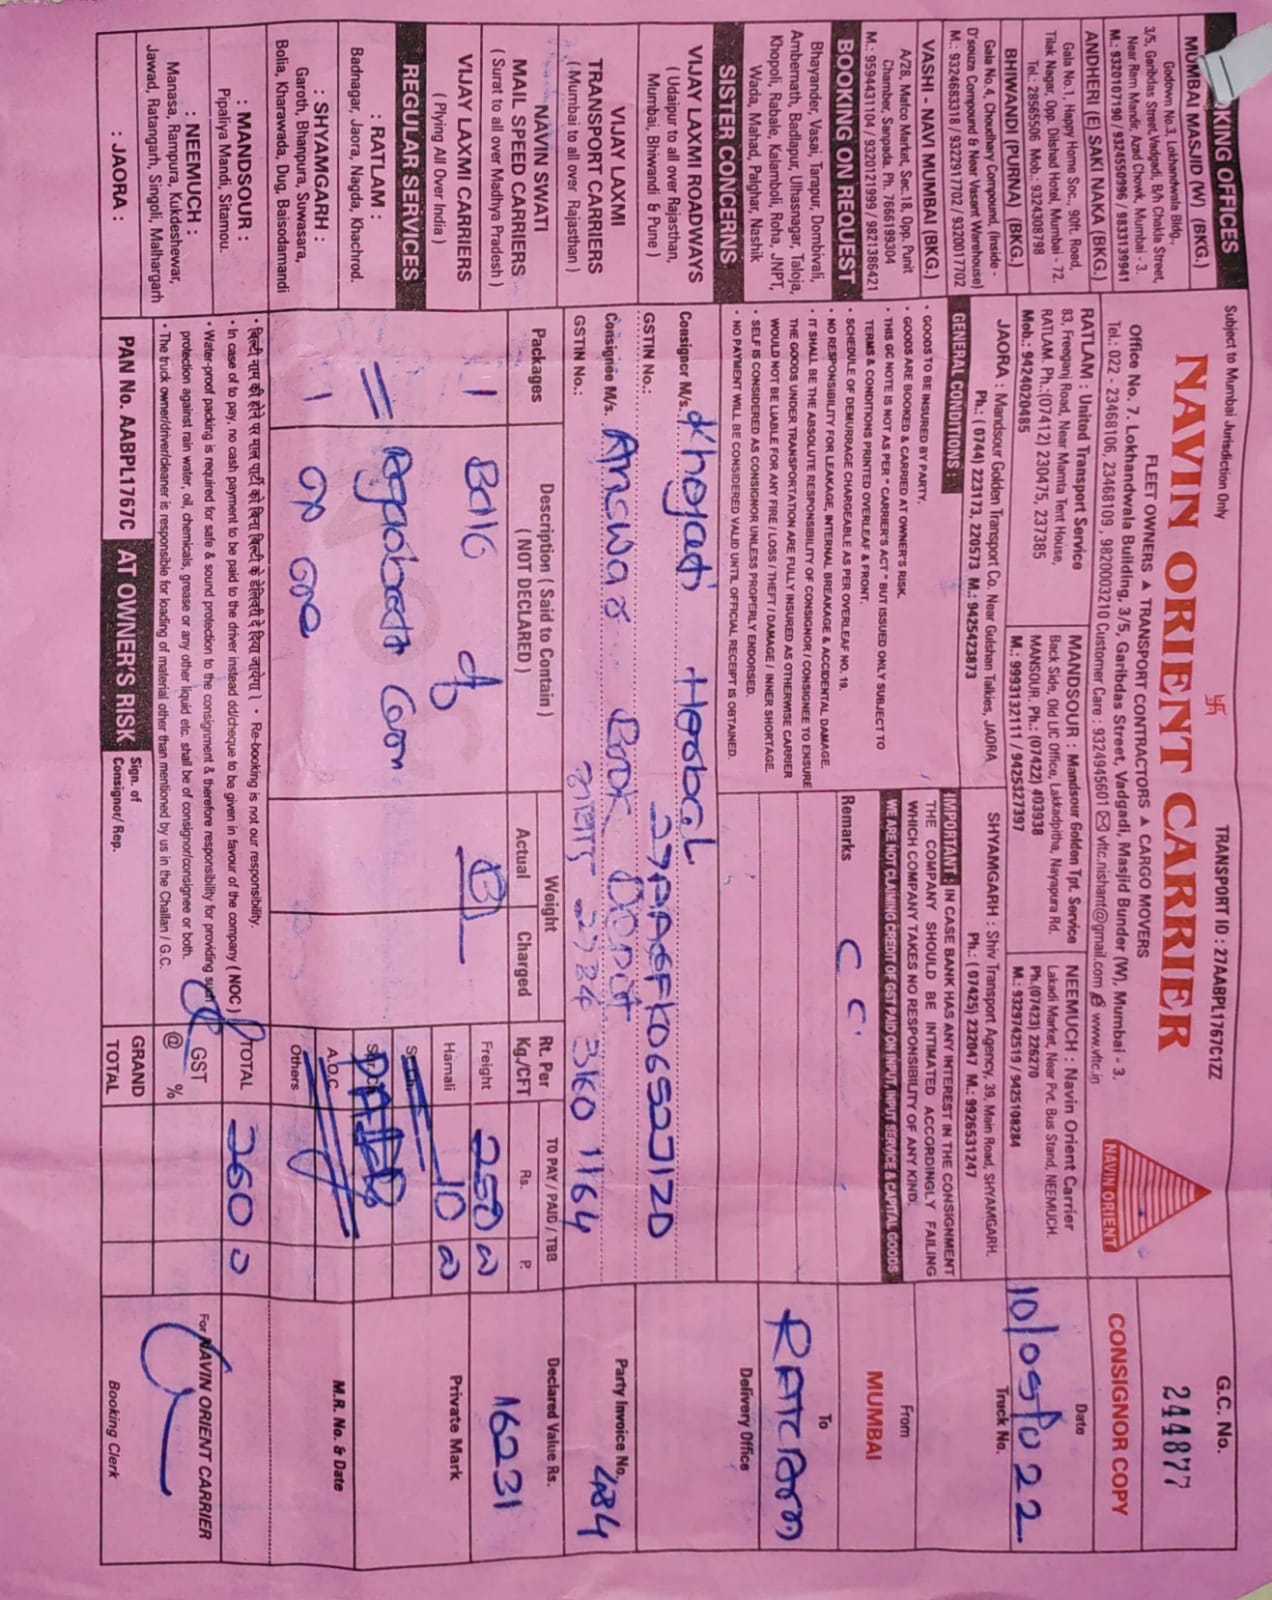 BOOKING OFFICES
MUMBAI MASJID (W) (BKG.)
Godown No.3, Lokhandwala Bldg.,
3/5, Garibdas Street, Vadgadi, B/h Chakla Street,
Near Ram Mandir, Azad Chowk, Mumbai - 3.
M.: 9320107190 / 9324550996 / 9833139941
ANDHERI (E) SAKI NAKA (BKG.)
Gala No.1, Happy Home Soc., 90ft. Road,
Tilak Nagar, Opp. Dilshad Hotel, Mumbai - 72.
Tel.: 28565506 Mob.: 9324308798
BHIWANDI (PURNA) (BKG.)
Gala No.4, Choudhary Compound, (Inside -
D'souza Compound & Near Vasant Warehouse)
M.: 9324683318 / 9322917702 / 9320017702
VASHI - NAVI MUMBAI (BKG.)
A/28, Mafco Market, Sec.18, Opp. Punit
Chamber, Sanpada, Ph. 7666199304
M.: 9594431104 / 9320121999 / 9821386421
BOOKING ON REQUEST
Bhayander, Vasai, Tarapur, Dombivali,
Ambernath, Badlapur, Ulhasnagar, Taloja,
Khopoli, Rabale, Kalamboli, Roha, JNPT,
Wada, Mahad, Palghar, Nashik
SISTER CONCERNS
VIJAY LAXMI ROADWAYS
( Udaipur to all over Rajasthan,
Mumbai, Bhiwandi & Pune )
VIJAY LAXMI
TRANSPORT CARRIERS
( Mumbai to all over Rajasthan )
NAVIN SWATI
MAIL SPEED CARRIERS
( Surat to all over Madhya Pradesh )
VIJAY LAXMI CARRIERS
( Plying All Over India )
REGULAR SERVICES
: RATLAM :
Badnagar, Jaora, Nagda, Khachrod.
: SHYAMGARH :
Garoth, Bhanpura, Suwasara,
Bolia, Kharawada, Dug, Baisodamandi
: MANDSOUR :
Pipaliya Mandi, Sitamou.
: NEEMUCH :
Manasa, Rampura, Kukdeshewar,
Jawad, Ratangarh, Singoli, Malhargarh
: JAORA :
Subject to Mumbai Jurisdiction Only
TRANSPORT ID : 27AABPL1767C1ZZ
NAVIN ORIENT CARRIER
FLEET OWNERS ▲ TRANSPORT CONTRACTORS ▲ CARGO MOVERS
Office No. 7, Lokhandwala Building, 3/5, Garibdas Street, Vadgadi, Masjid Bunder (W), Mumbai - 3.
Tel.: 022 - 23468106, 23468109, 9820003210 Customer Care : 9324945601 vltc.nishant@gmail.com www.vltc.in
NAVIN ORIENT
RATLAM : United Transport Service
83, Freeganj Road, Near Mamta Tent House,
RATLAM. Ph.:(07412) 230475, 237385
Mob.: 9424020485
MANDSOUR : Mandsour Golden Tpt. Service
Back Side, Old LIC Office, Lakkadpitha, Nayapura Rd.
MANSOUR. Ph.: (07422) 403938
M.: 9993132111 / 9425327397
NEEMUCH : Navin Orient Carrier
Lakadi Market, Near Pvt. Bus Stand, NEEMUCH.
Ph.(07423) 226270
M.: 9329742519 / 9425108284
JAORA : Mandsour Golden Transport Co. Near Gulshan Talkies, JAORA
Ph.: ( 0744) 223173, 220573 M.: 9425423873
SHYAMGARH : Shiv Transport Agency, 39, Main Road, SHYAMGARH.
Ph.: ( 07425) 232047 M.: 9926531247
GENERAL CONDITIONS :
• GOODS TO BE INSURED BY PARTY.
• GOODS ARE BOOKED & CARRIED AT OWNER'S RISK.
• THIS GC NOTE IS NOT AS PER "CARRIER'S ACT" BUT ISSUED ONLY SUBJECT TO
TERMS & CONDITIONS PRINTED OVERLEAF & FRONT.
• SCHEDULE OF DEMURRAGE CHARGEABLE AS PER OVERLEAF NO. 19.
• NO RESPONSIBILITY FOR LEAKAGE, INTERNAL BREAKAGE & ACCIDENTAL DAMAGE.
• IT SHALL BE THE ABSOLUTE RESPONSIBILITY OF CONSIGNOR / CONSIGNEE TO ENSURE
THE GOODS UNDER TRANSPORTATION ARE FULLY INSURED AS OTHERWISE CARRIER
WOULD NOT BE LIABLE FOR ANY FIRE / LOSS / THEFT / DAMAGE / INNER SHORTAGE.
• SELF IS CONSIDERED AS CONSIGNOR UNLESS PROPERLY ENDORSED.
• NO PAYMENT WILL BE CONSIDERED VALID UNTIL OFFICIAL RECEIPT IS OBTAINED.
IMPORTANT : IN CASE BANK HAS ANY INTEREST IN THE CONSIGNMENT
THE COMPANY SHOULD BE INTIMATED ACCORDINGLY FAILING
WHICH COMPANY TAKES NO RESPONSIBILITY OF ANY KIND.
WE ARE NOT CLAIMING CREDIT OF GST PAID ON INPUT, INPUT SERVICE & CAPITAL GOODS
Remarks C C
G.C. No.
244877
CONSIGNOR COPY
Date
10/05/022
Truck No.
From
MUMBAI
To
RATLAM
Delivery Office
Consignor M/s. Khojati Herbal
GSTIN No.: 27AAGFK0652J1ZD
Consignee M/s. Answar Book Depot
GSTIN No.: 2724 3K0 1164
Party Invoice No. 484
Packages
Description ( Said to Contain )
( NOT DECLARED )
Weight
Actual
Charged
Rt. Per
Kg./CFT
TO PAY / PAID / TBB
Rs.
P.
Declared Value Rs.
16231
1 Ball of
Agarbatti Con
1 on one
Freight 250 00
Hamali 10 00
St. Ch.
Sur. Ch.
PAID
A.O.C.
Others
TOTAL 260 0
GST
@ %
GRAND
TOTAL
Private Mark
M.R. No. & Date
• बिल्टी नाम की होने पर माल पार्टी को बिना बिल्टी के डेलिवरी दे दिया जायेगा। • Re-booking is not our responsibility.
• In case of to pay, no cash payment to be paid to the driver instead dd/cheque to be given in favour of the company ( NOC )
• Water-proof packing is required for safe & sound protection to the consignment & therefore responsibility for providing such
protection against rain water, oil, chemicals, grease or any other liquid etc. shall be of consignor/consignee or both.
• The truck owner/driver/cleaner is responsible for loading of material other than mentioned by us in the Challan / G.C.
PAN No. AABPL1767C
AT OWNER'S RISK
Sign. of
Consignor/ Rep.
For NAVIN ORIENT CARRIER
Booking Clerk